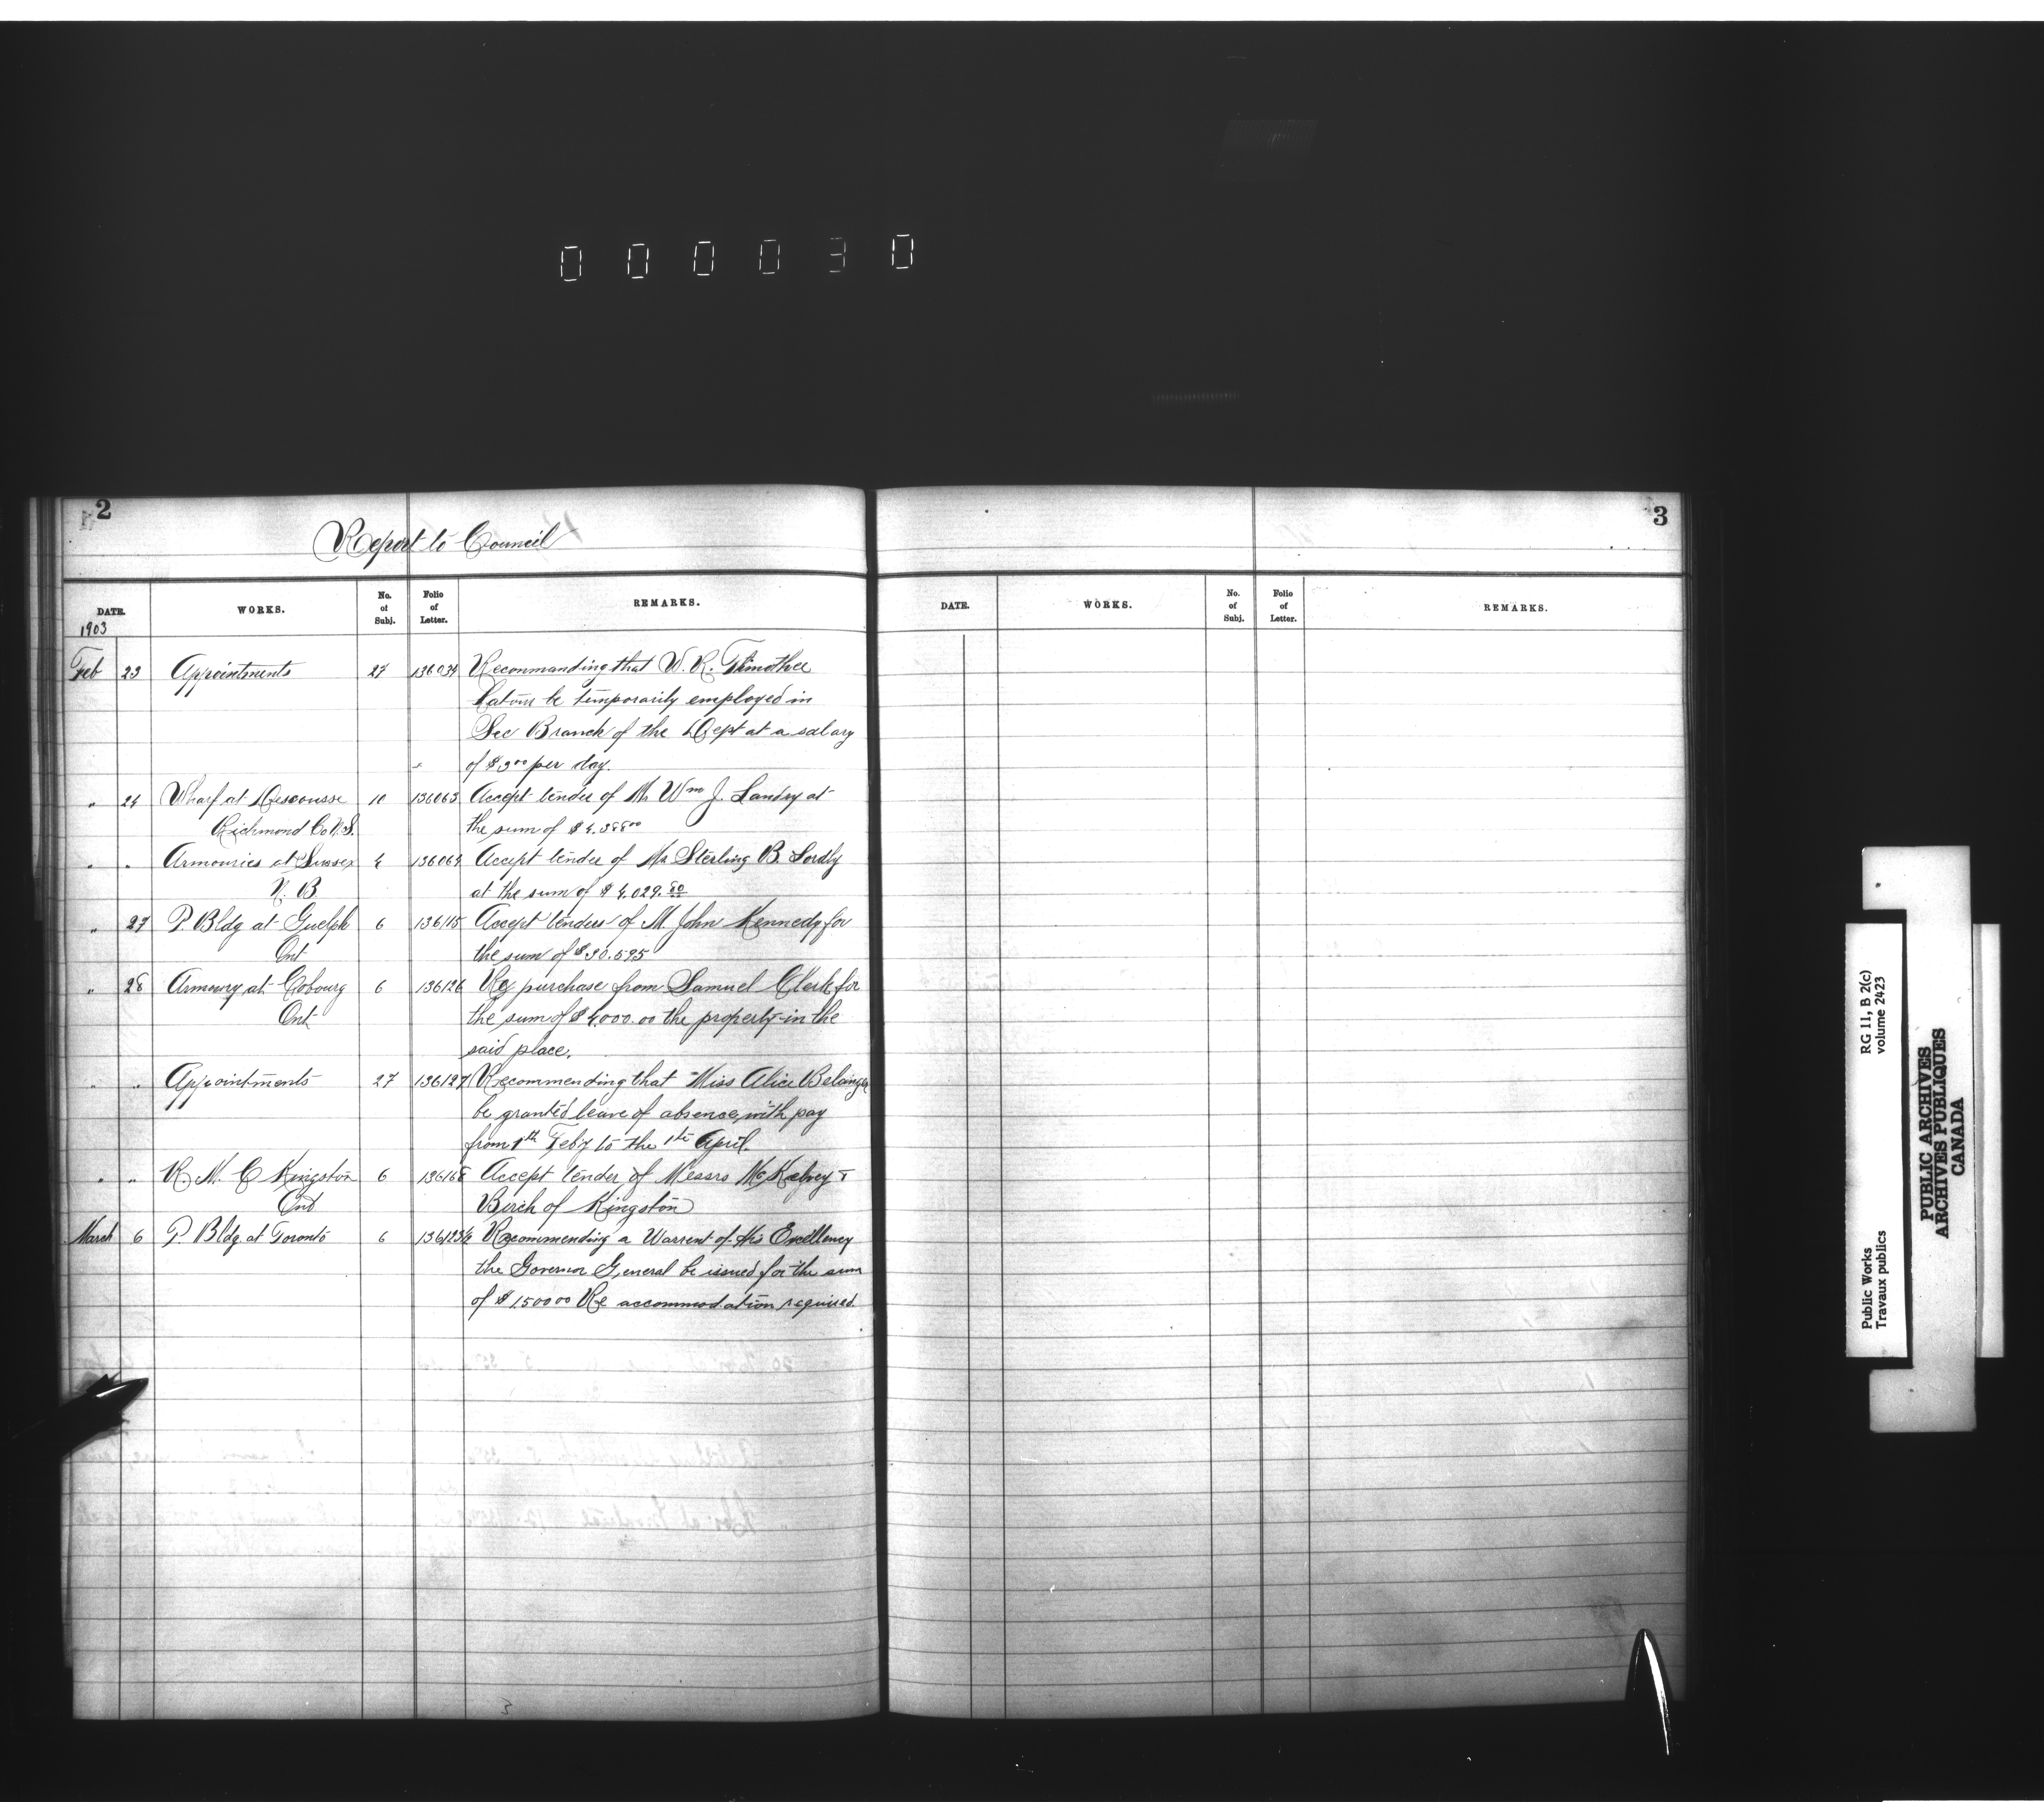 000030
2
Report to Council
DATE. WORKS. No. of Subj. Folio of Letter. REMARKS.
1903
Feb 23 Appointments 27 136034 Recommanding that W. R. Timothee
be temporarily employed in
Sec Branch of the Dept at a salary
of $3 00 per day.
" 24 Wharf at Descousse 10 136063 Accept tender of Mr Wm J. Landry at
Richmond Co N.S. the sum of
" " Armouries at Sussex 4 136064 Accept tender of Mr Sterling B. Lordly
N. B at the sum of $ 4.029.00
" 27 P. Bldg at Guelph 6 136115 Accept tenders of M. John Kennedy for
Ont the sum of $30.595
" 28 Armoury at Cobourg 6 136126 Re purchase from Samuel Clark for
Ont the sum of $4,000.00 the property in the
said place.
" " Appointments 27 136127 Recommending that Miss Alice Belanger
be granted leave of absence with pay
from 1th Feby to the 1th April.
" " R. M. C Kingston 6 136168 Accept tender of Messrs McKelvey &
Ont Birch of Kingston
March 6 P. Bldg at Toronto 6 Recommending a Warrent of His Excellency
the Governor General be issued for the sum
of $ 1500 00 Re accommodation required.
3
DATE. WORKS. No. of Subj. Folio of Letter. REMARKS.
Public Works
Travaux publics
RG 11, B 2(c)
volume 2423
PUBLIC ARCHIVES
ARCHIVES PUBLIQUES
CANADA